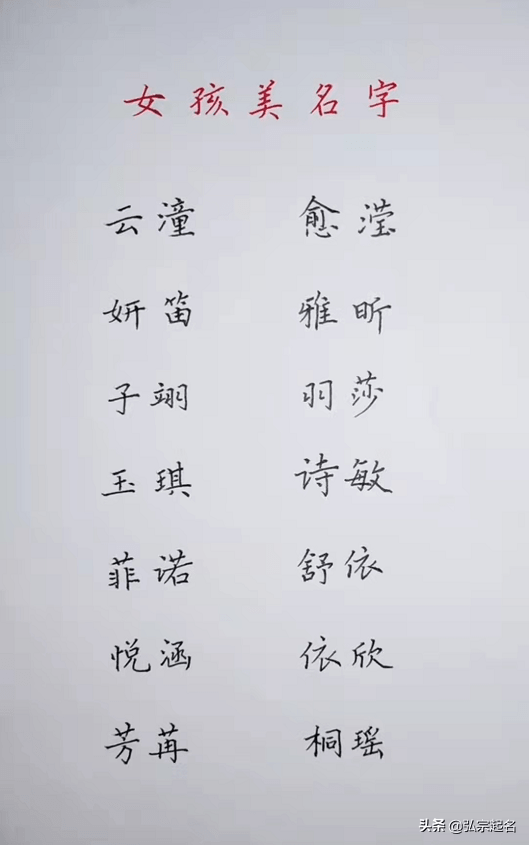 女孩美名字
云潼 愈滢
妍笛 雅昕
子翊 羽莎
玉琪 诗敏
菲诺 舒依
悦涵 依欣
芳苒 桐瑶
头条 @弘宗起名